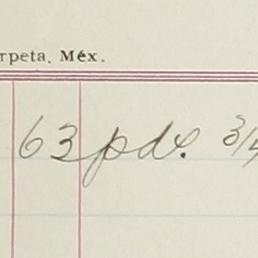 rpeta, Méx.
63 pds. 3/4